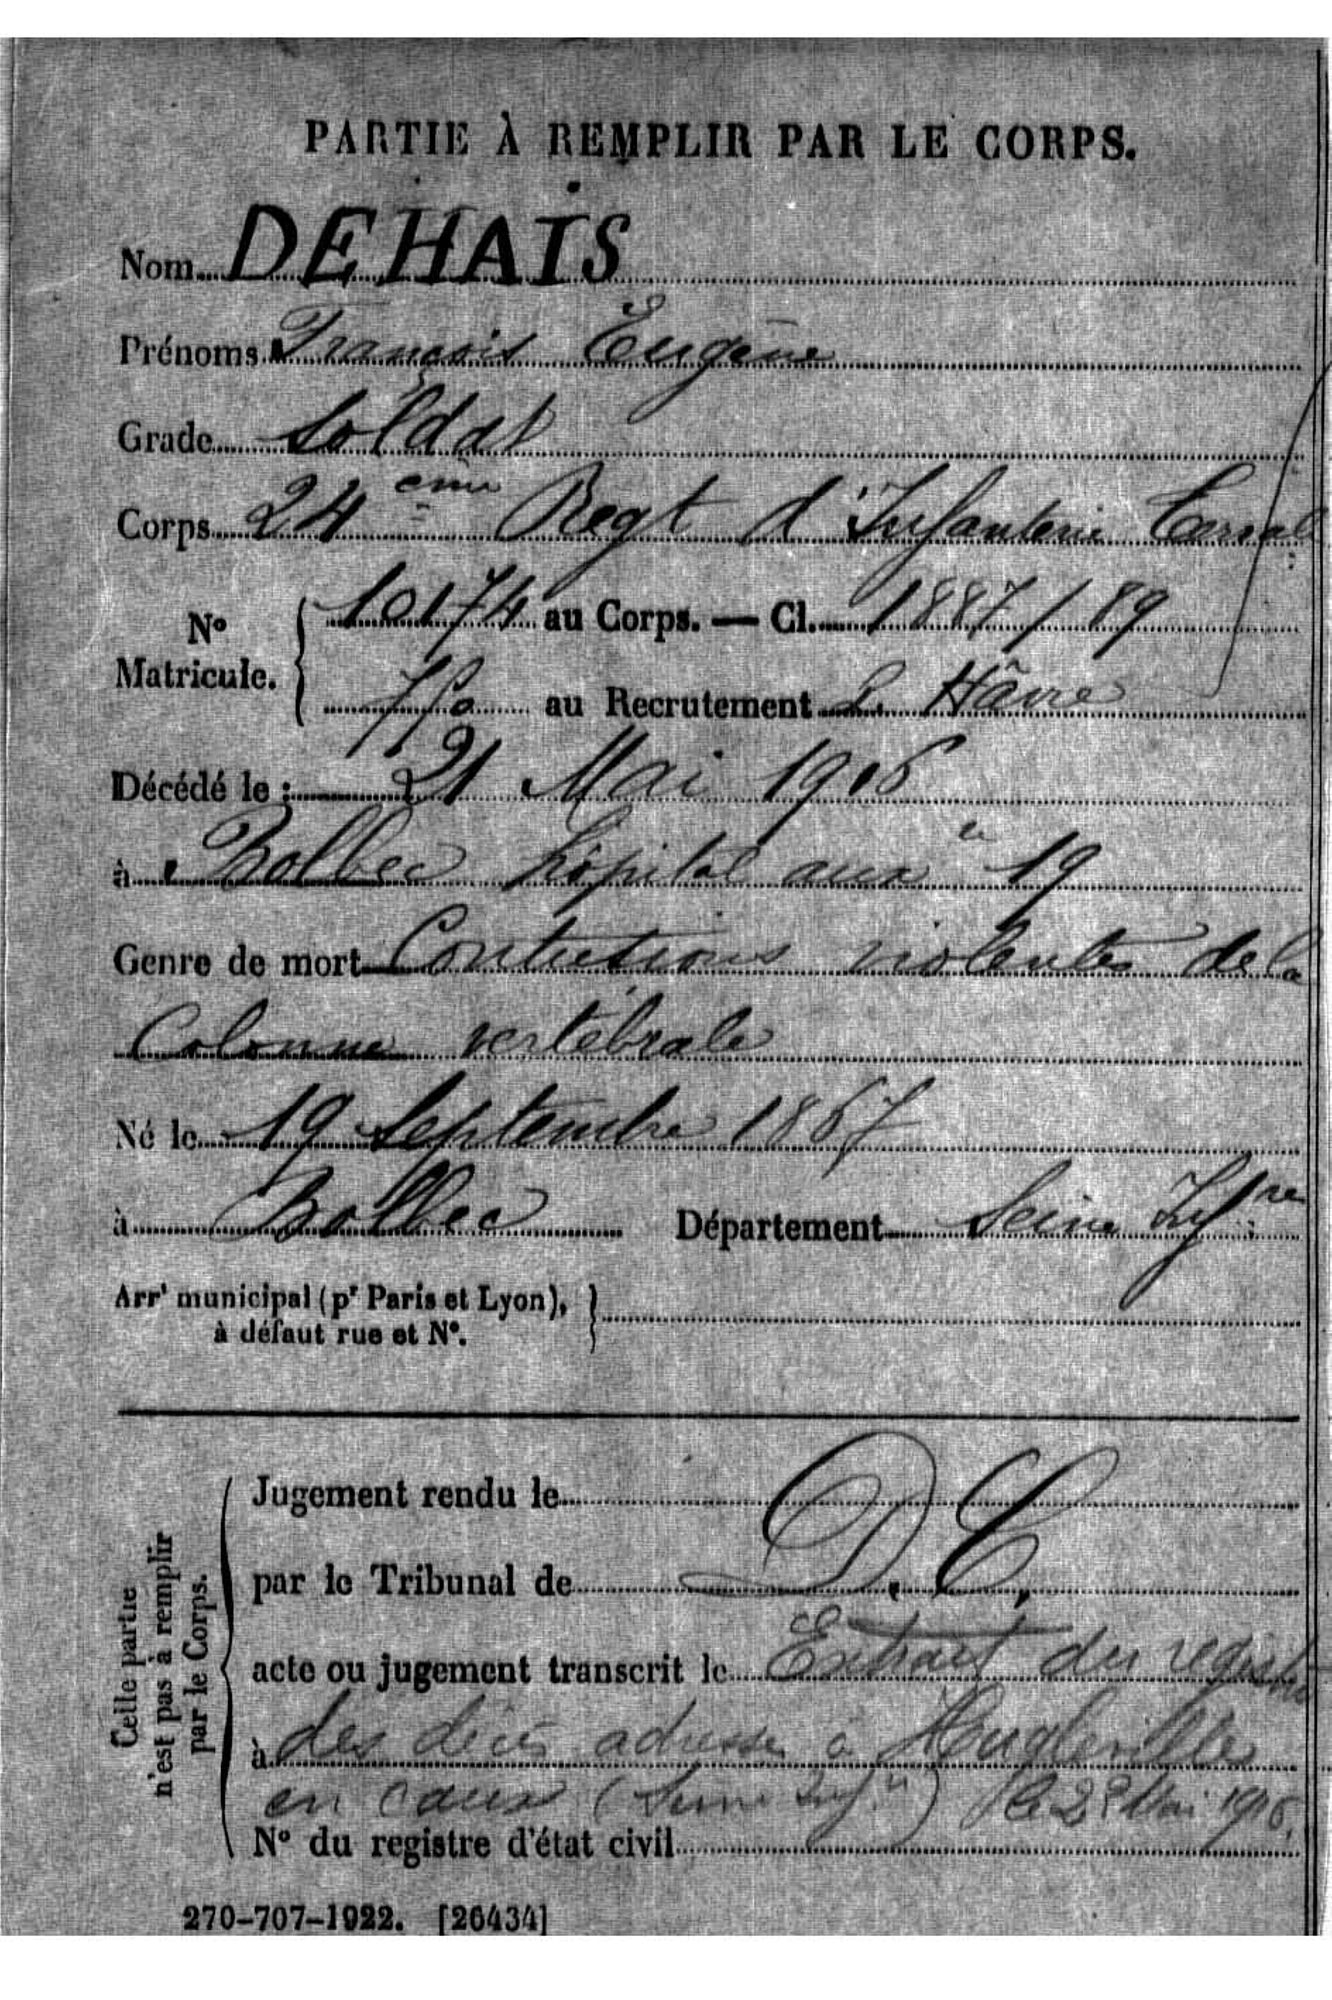 PARTIE À REMPLIR PAR LE CORPS.
Nom DEHAIS
Prénoms François Eugène
Grade Soldat
Corps 24 ème Regt d'Infanterie
N° Matricule. 10174 au Corps. — Cl. 1887/89
au Recrutement Le Hâvre
Décédé le : 21 Mai 1916
à Bolbec hôpital aux re 19
Genre de mort Contusions violentes de la
Colonne vertébrale
Né le 19 Septembre 1867
à Bolbec Département Seine Infre
Arrt municipal (pr Paris et Lyon),
à défaut rue et N°.
Celle partie
n'est pas à remplir
par le Corps.
Jugement rendu le
par le Tribunal de D. C.
acte ou jugement transcrit le Extrait du registre
à des décès adressé à Hugleville
en caux (Seine Infre) le 29 Mai 1916.
N° du registre d'état civil
270-707-1922. [26434]